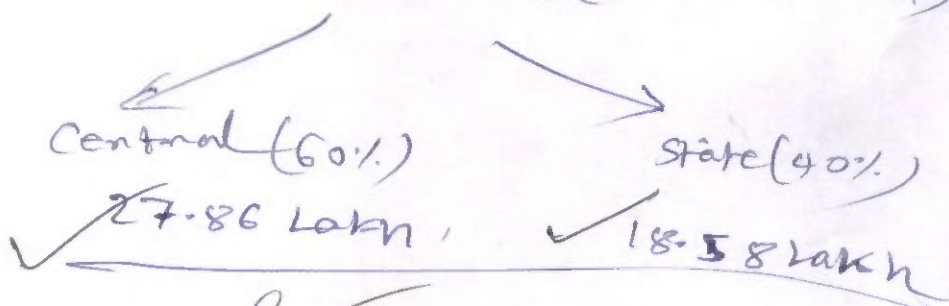 Central (60%) State (40%)
27.86 Lakh, 18.58 Lakh